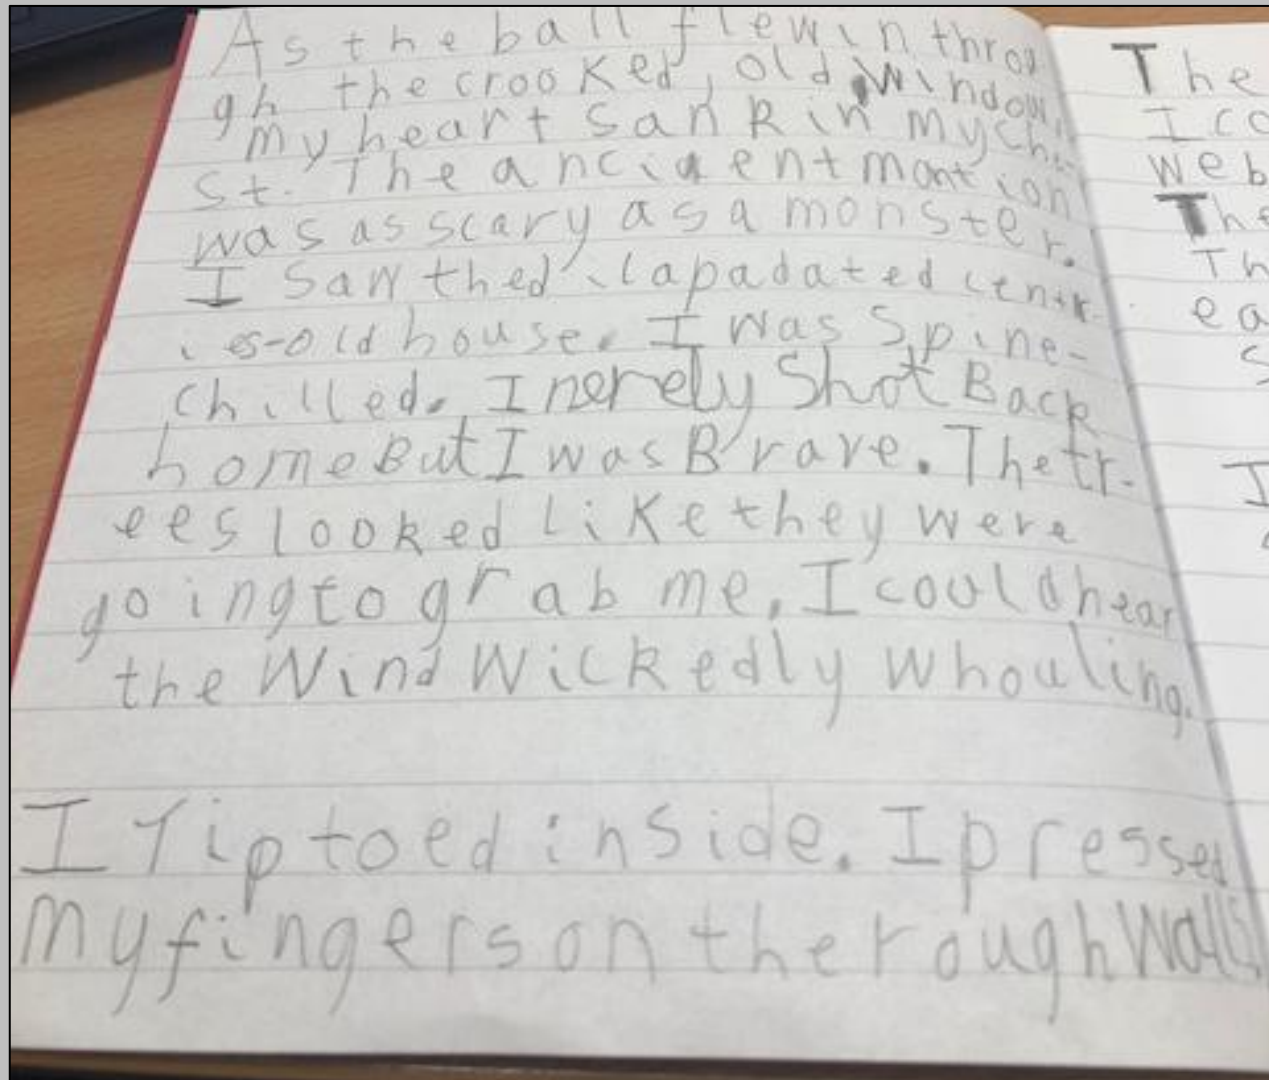 As the ball flew in throu
gh the crooked, old window,
my heart sank in my che
st. The anciaent montion
was as scary as a monster.
I saw the dilapadated centur
ies-old house. I was spine-
chilled. I nerely Shot Back
home But I was Brave. The tr-
ees looked like they were
going to grab me. I could hear
the Wind Wickedly whouling.
I Tiptoed inside. I pressed
my fingers on the rough Walls
The
I co
web
The
Th
ea
s
I